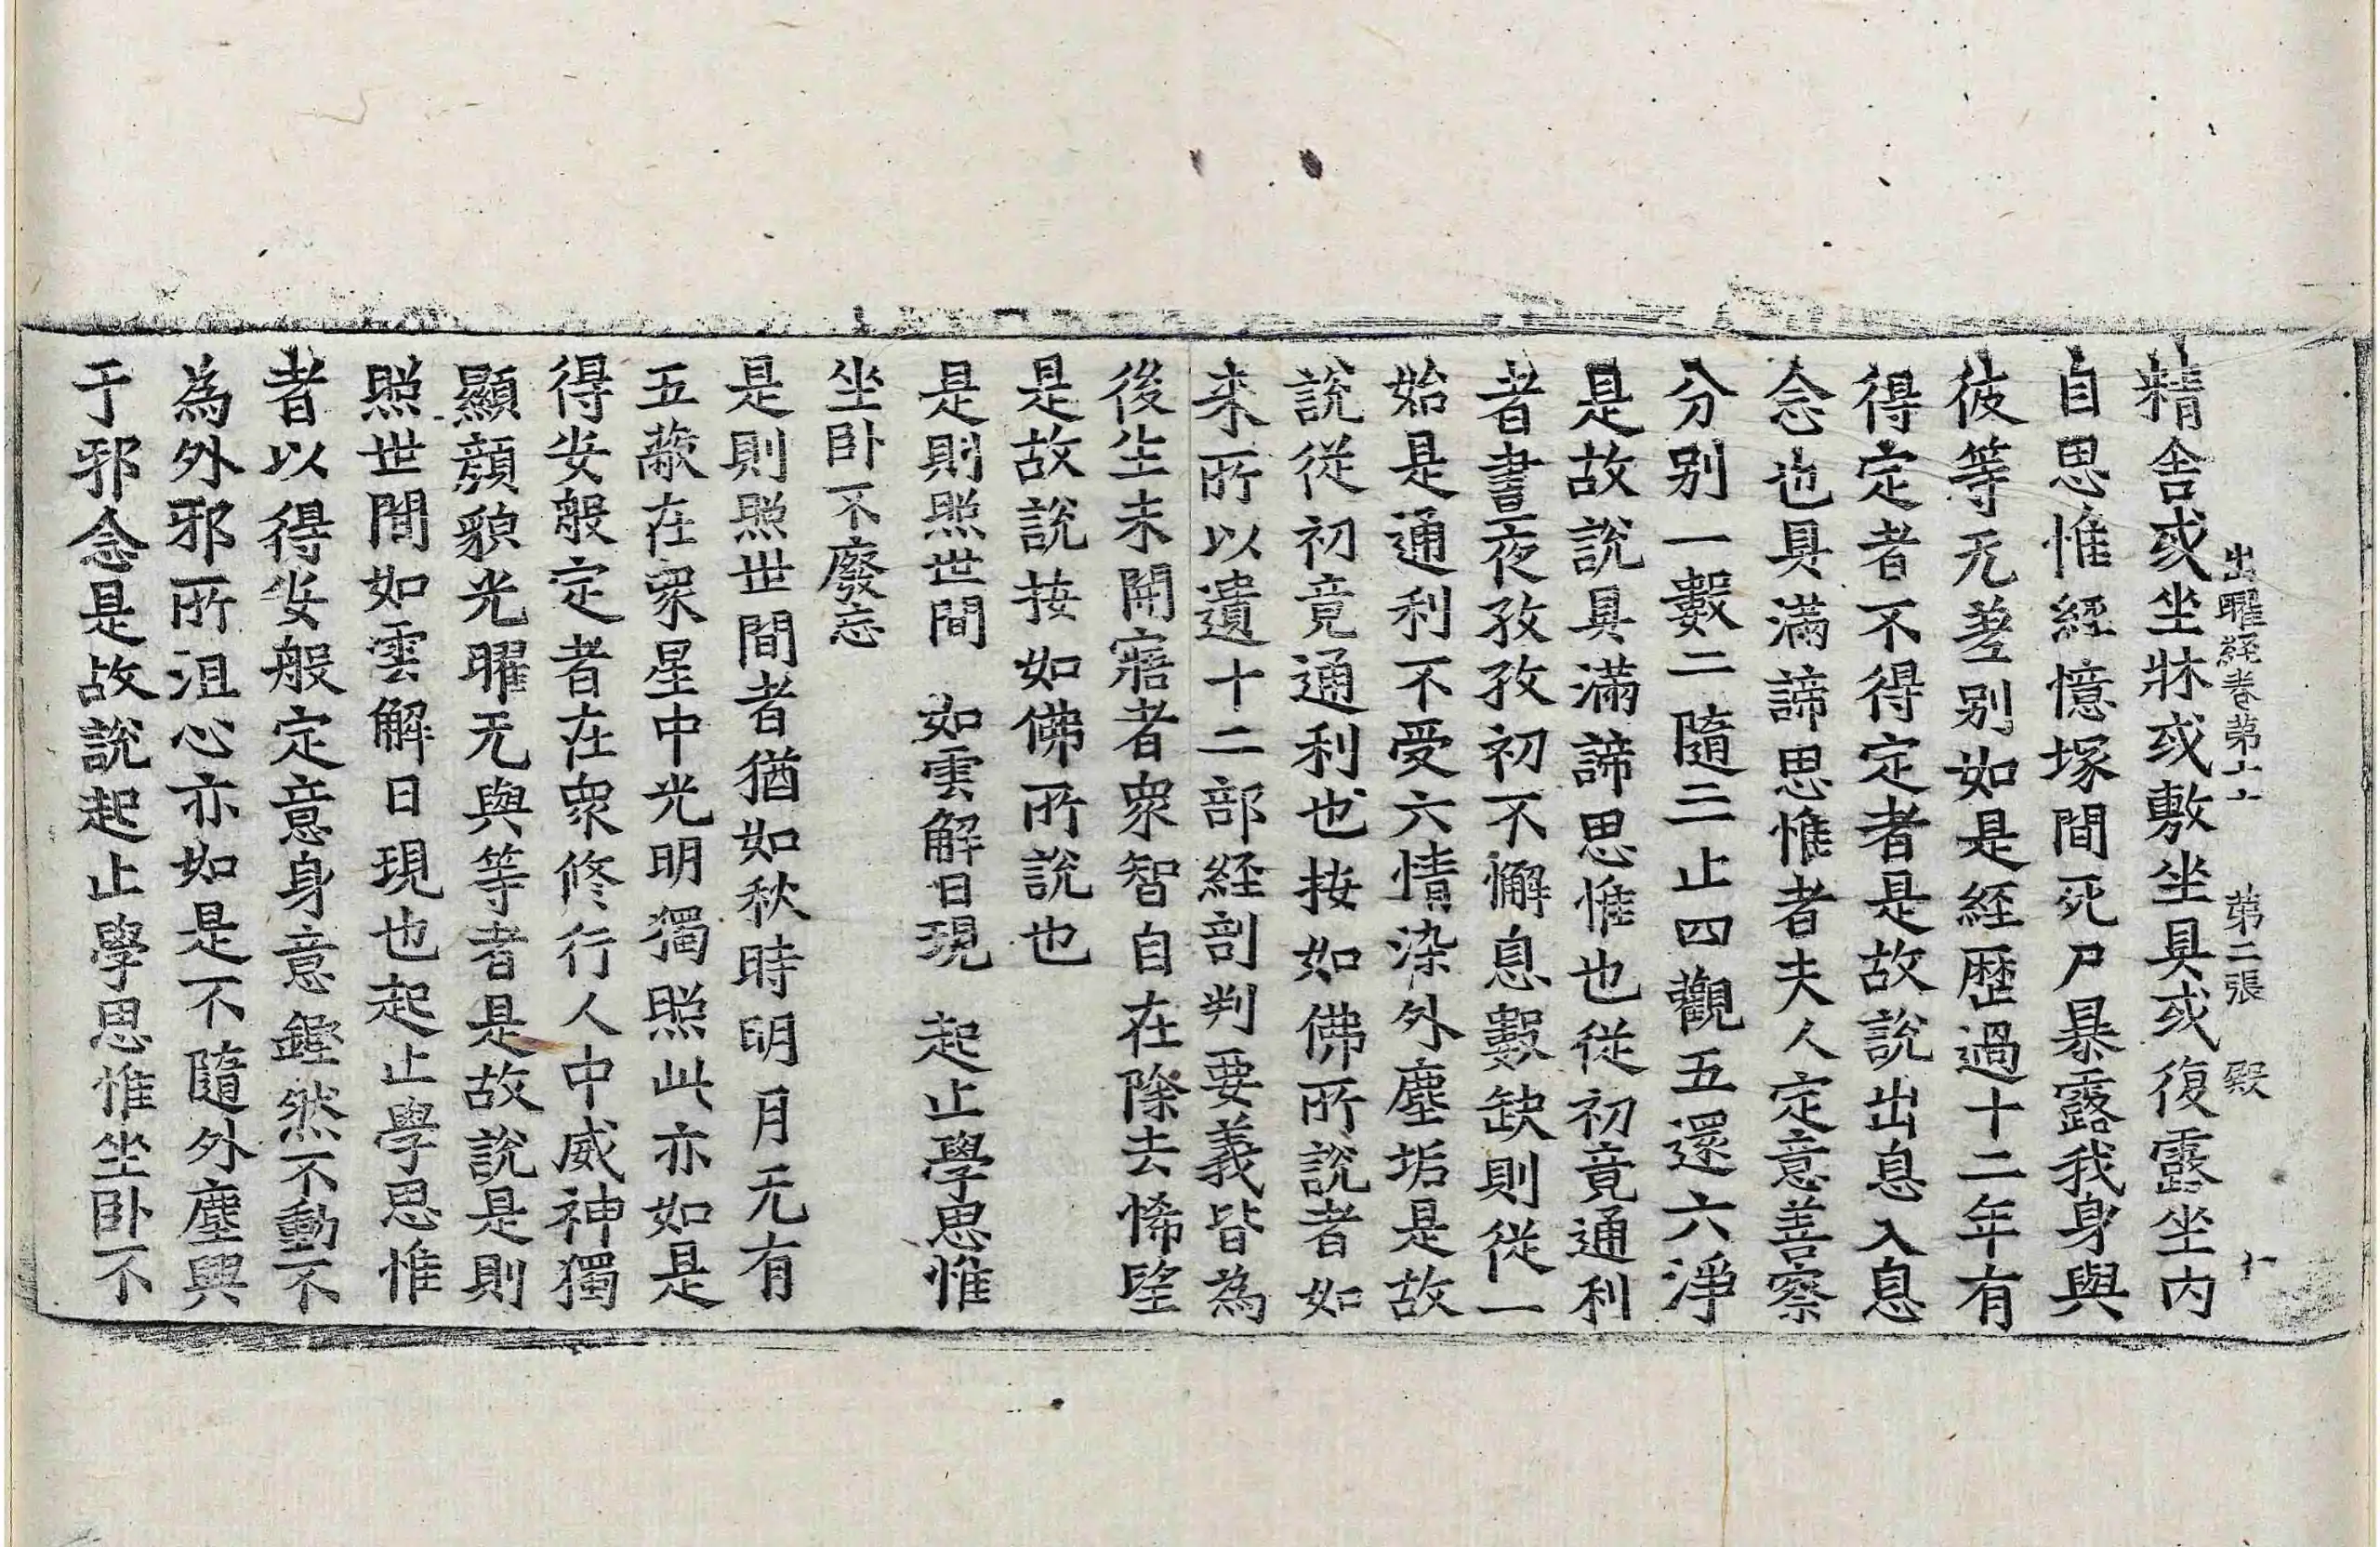 出曜經卷第十七 第二張 殿
精舍或坐牀或敷坐具或復露坐内
自思惟經憶塚間死尸暴露我身與
彼等无差别如是経歷過十二年有
得定者不得定者是故說出息入息
念也具滿諦思惟者夫人定意善察
分别一數二隨三止四觀五還六淨
是故說具滿諦思惟也從初竟通利
者晝夜孜孜初不懈息數缺則從一
始是通利不受六情染外塵垢是故
說從初竟通利也按如佛所說者如
来所以遺十二部経剖判要義皆為
後生未開寤者衆智自在除去悕望
是故說按如佛所說也
是則照世間 如雲解日現 起止學思惟
坐卧不廢忘
是則照世間者猶如秋時明月无有
五蔽在衆星中光明獨照此亦如是
得安般定者在衆修行人中威神獨
顯顏貌光曜无與等者是故說是則
照世間如雲解日現也起止學思惟
者以得安般定意身意鏗然不動不
為外邪所沮心亦如是不隨外塵興
于邪念是故說起止學思惟坐卧不